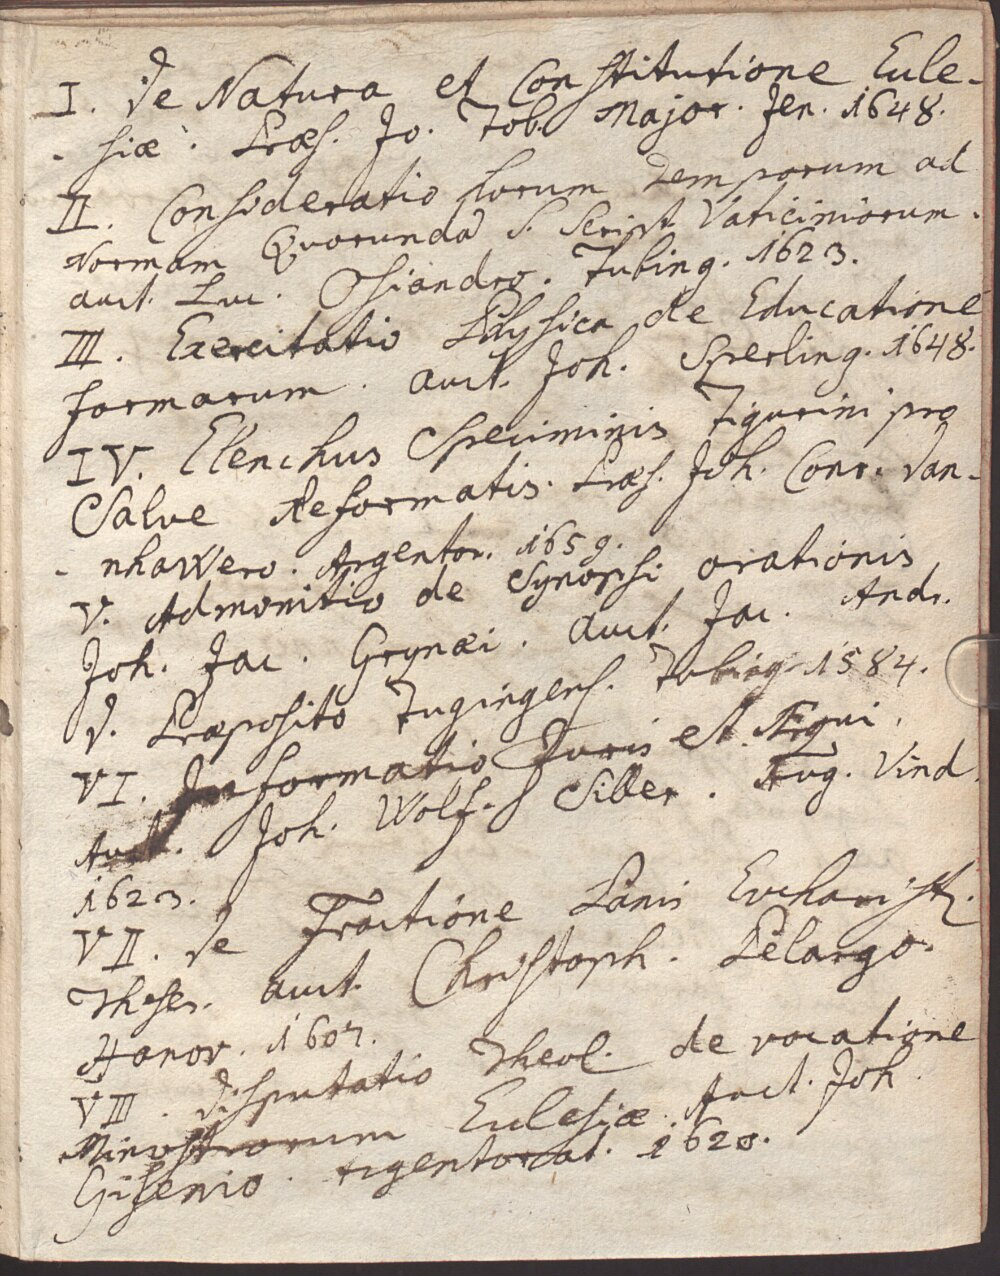 I. De Natura et Constitutione Eccle-
- siæ. Præs. Jo. Tob. Major. Jen. 1648.
II. Consideratio horum Temporum ad
Normam Quorunda S. Script. Vaticiniorum.
auct. Luc. Osiandro. Tubing. 1623.
III. Exercitatio Physica de Educatione
formarum. auct. Joh. Sperling. 1648.
IV. Elenchus Speciminis Tigurini pro
Salve Reformatis. Præs. Joh. Conr. Dan-
- nhawero. Argentor. 1659.
V. Admonitio de Synopsi orationis
Joh. Jac. Grynæi. Auct. Jac. Andr.
D. Præposito Tugingens. Tubing. 1584.
VI. Informatio Juris et Æqui.
Auct. Joh. Wolf. Silber. Aug. Vind.
1623.
VII. De Fractione Panis Eucharist.
Theses. auct. Christoph. Pelargo.
Hanov. 1607.
VIII. Disputatio Theol. de vocatione
Ministrorum Ecclesiæ. Auct. Joh.
Gisenio. Argentorat. 1620.